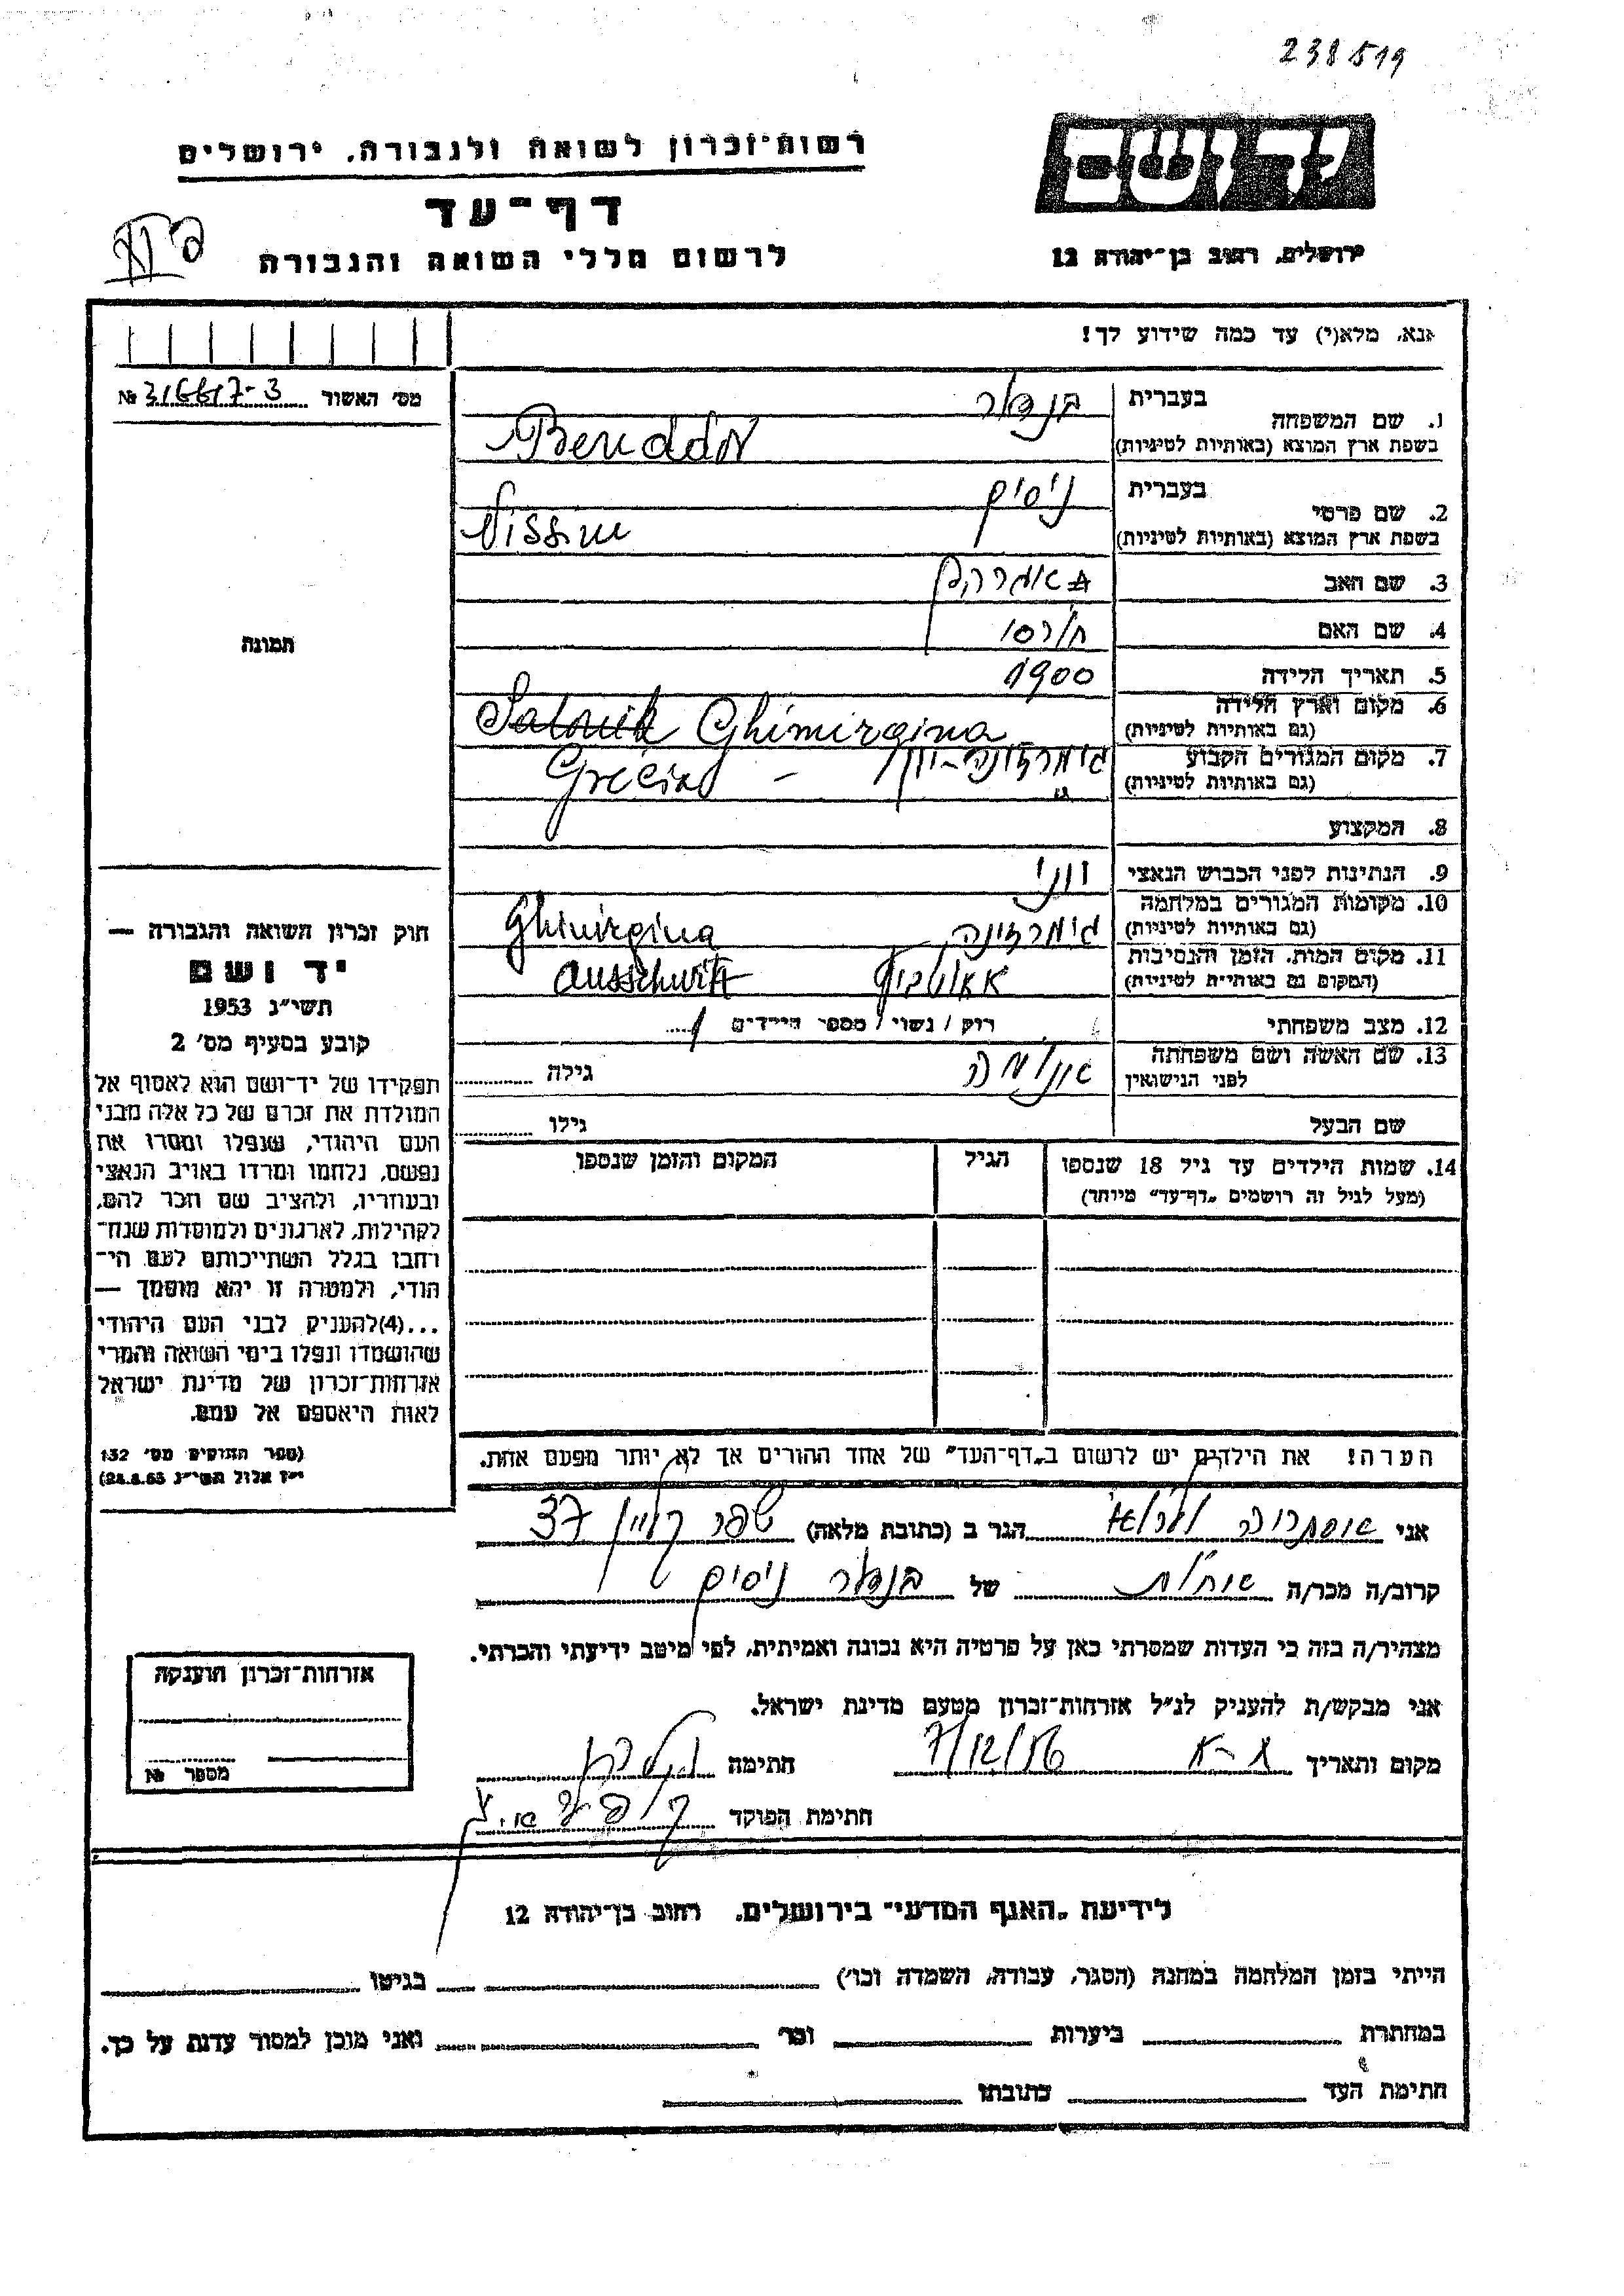 238519
רשות־זכרון לשואה ולגבורה, ירושלים
דף־עד
לרשום חללי השואה והגבורה
יד ושם
ירושלים, רחוב בן־יהודה 12
אנא, מלא(י) עד כמה שידוע לך!
מס׳ האשור № 316617-3
תמונה
1. שם המשפחה בעברית
בשפת ארץ המוצא (באותיות לטיניות) Benddor
2. שם פרטי בעברית ניסים
בשפת ארץ המוצא (באותיות לטיניות) Nissim
3. שם האב אברהם
4. שם האם
5. תאריך הלידה 1900
6. מקום וארץ הלידה (גם באותיות לטיניות) Salonik Ghimirgina
7. מקום המגורים הקבוע (גם באותיות לטיניות) גימרזינה - יון Grecia
8. המקצוע
9. הנתינות לפני הכבוש הנאצי יוני
10. מקומות המגורים במלחמה (גם באותיות לטיניות) גימרזינה Ghimirgina
11. מקום המות, הזמן והנסיבות (המקום גם באותיות לטיניות) Ausschwitz
12. מצב משפחתי רוק / נשוי / מספר הילדים
13. שם האשה ושם משפחתה לפני הנישואין גילה
שם הבעל גילו
14. שמות הילדים עד גיל 18 שנספו
(מעל לגיל זה רושמים „דף־עד” מיוחד)
הגיל
המקום והזמן שנספו
הערה! את הילדים יש לרשום ב„דף־העד” של אחד ההורים אך לא יותר מפעם אחת.
חוק זכרון השואה והגבורה —
יד ושם
תשי״ג 1953
קובע בסעיף מס׳ 2
תפקידו של יד־ושם הוא לאסוף אל
המולדת את זכרם של כל אלה מבני
העם היהודי, שנפלו ומסרו את
נפשם, נלחמו ומרדו באויב הנאצי
ובעוזריו, ולהציב שם וזכר להם,
לקהילות, לארגונים ולמוסדות שנח־
רבו בגלל השתייכותם לעם הי־
הודי, ולמטרה זו יהא מוסמך —
...(4)להעניק לבני העם היהודי
שהושמדו ונפלו בימי השואה והמרי
אזרחות־זכרון של מדינת ישראל
לאות היאספם אל עמם.
(ספר החוקים מס׳ 132
י״ז אלול תשי״ג 28.8.53)
אני הגר ב (כתובת מלאה) 37
קרוב/ה מכר/ה של ניסים
מצהיר/ה בזה כי העדות שמסרתי כאן על פרטיה היא נכונה ואמיתית, לפי מיטב ידיעתי והכרתי.
אני מבקש/ת להעניק לנ״ל אזרחות־זכרון מטעם מדינת ישראל.
מקום ותאריך 7/12/56 חתימה
חתימת הפוקד
אזרחות־זכרון הוענקה
מספר №
לידיעת „האגף המדעי” בירושלים. רחוב בן־יהודה 12
הייתי בזמן המלחמה במחנה (הסגר, עבודה, השמדה וכו׳) בגיטו
במחתרת ביערות וכו׳ ואני מוכן למסור עדות על כך.
חתימת העד כתובתו